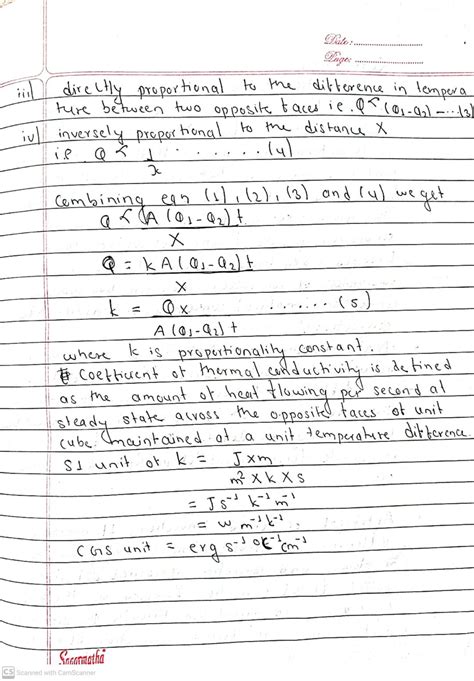 Date: ..................
Page: ..................
iii) directly proportional to the difference in tempera
ture between two opposite faces ie. Q ∝ (Q1-Q2) --- (3)
iv) inversely proportional to the distance X
i.e Q ∝ 1/x ........ (4)
Combining eqn (1), (2), (3) and (4) we get
Q ∝ A(Q1-Q2)t / X
Q = kA(Q1-Q2)t / X
k = Qx / A(Q1-Q2)t ...... (5)
where k is proportionality constant.
Coefficient of thermal conductivity is defined
as the amount of heat flowing per second at
steady state across the opposite faces of unit
cube maintained at a unit temperature difference.
SI unit of k = J×m / m² × K × s
= J s⁻¹ k⁻¹ m⁻¹
= w m⁻¹ k⁻¹.
CGS unit = erg s⁻¹ °C⁻¹ cm⁻¹
Sagarmatha
CS Scanned with CamScanner